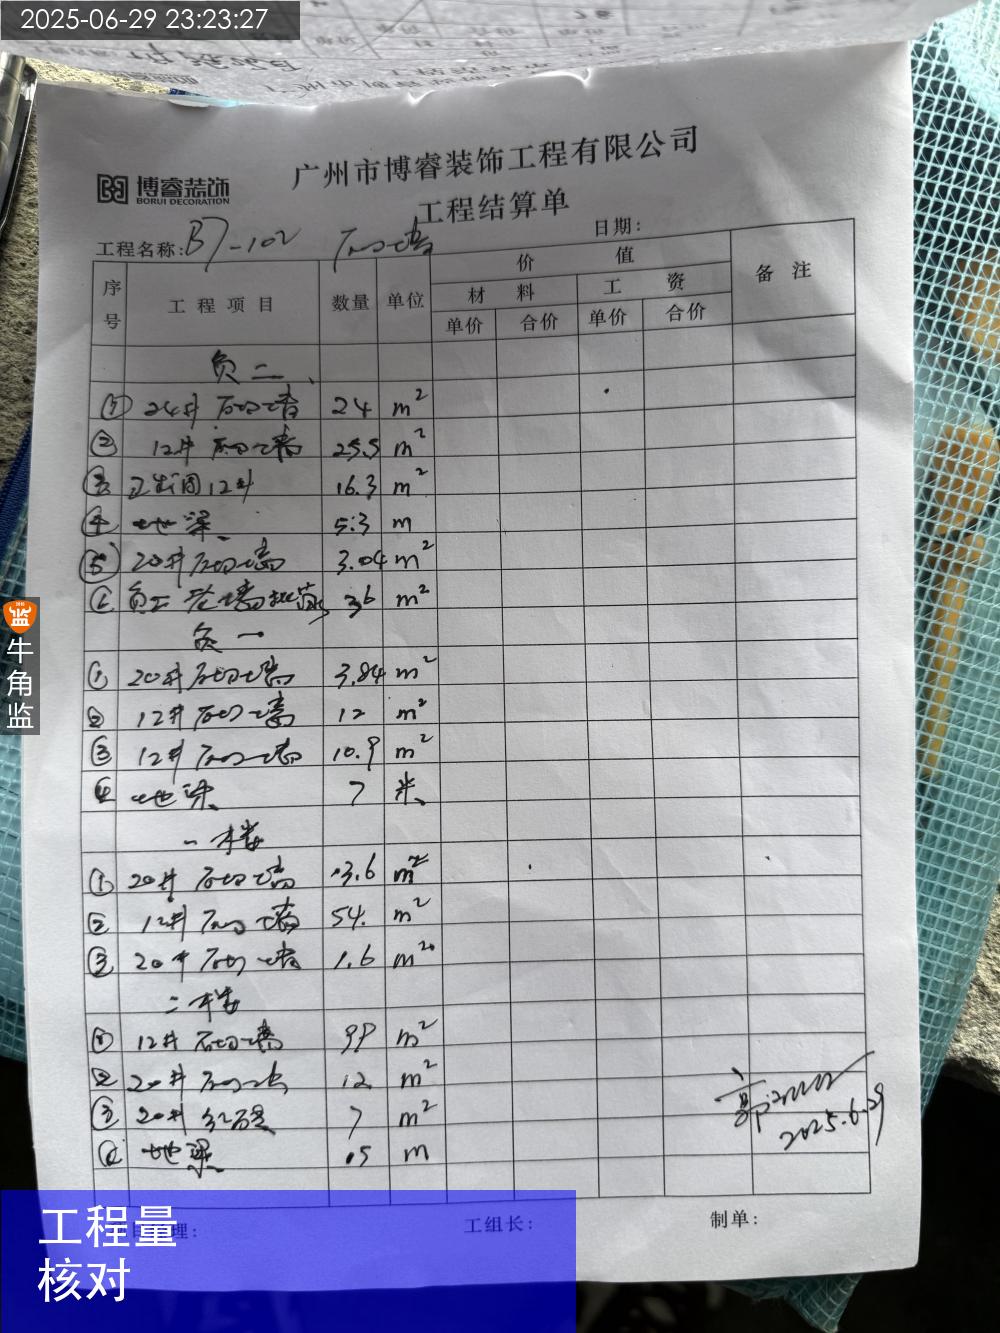 2025-06-29 23:23:27
广州市博睿装饰工程有限公司
博睿装饰
BORUI DECORATION
工程结算单
工程名称: B7-102 砌墙
日期:
序号 工程项目 数量 单位 价值 备注
材料 工资
单价 合价 单价 合价
负二
① 24井 砌墙 24 m²
② 12井 砌墙 25.5 m²
③ 卫生间12井 16.3 m²
④ 地梁 5.3 m
⑤ 20井砌墙 3.04 m²
⑥ 负二 墙 36 m²
负一
① 20井砌墙 3.84 m²
② 12井砌墙 12 m²
③ 12井砌墙 10.9 m²
④ 地梁 7 米
一楼
① 20井 砌墙 3.6 m²
② 12井 砌墙 54. m²
③ 20井 砌墙 1.6 m²
二楼
① 12井 砌墙 99 m²
② 20井 砌墙 12 m²
③ 20井 红砖 7 m²
④ 地梁 15 m
郭
2025.6.29
工组长:
制单:
牛角监
工程量
核对